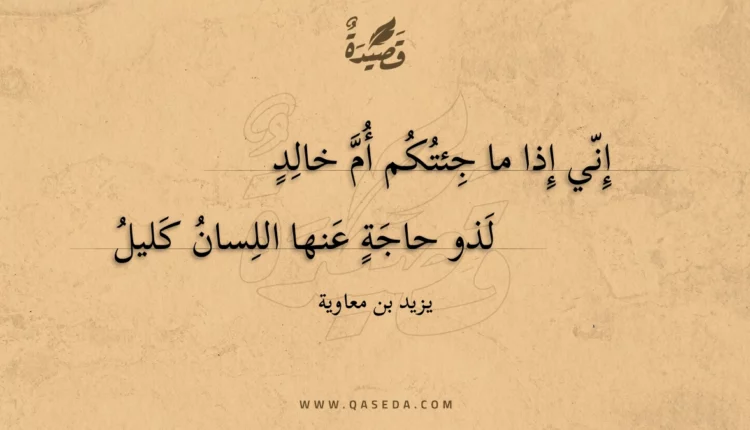 قَصِيدَةٌ
إِنّي إِذا ما جِئتُكُم أُمَّ خالِدٍ
لَذو حاجَةٍ عَنها اللِسانُ كَليلُ
يزيد بن معاوية
WWW.QASEDA.COM